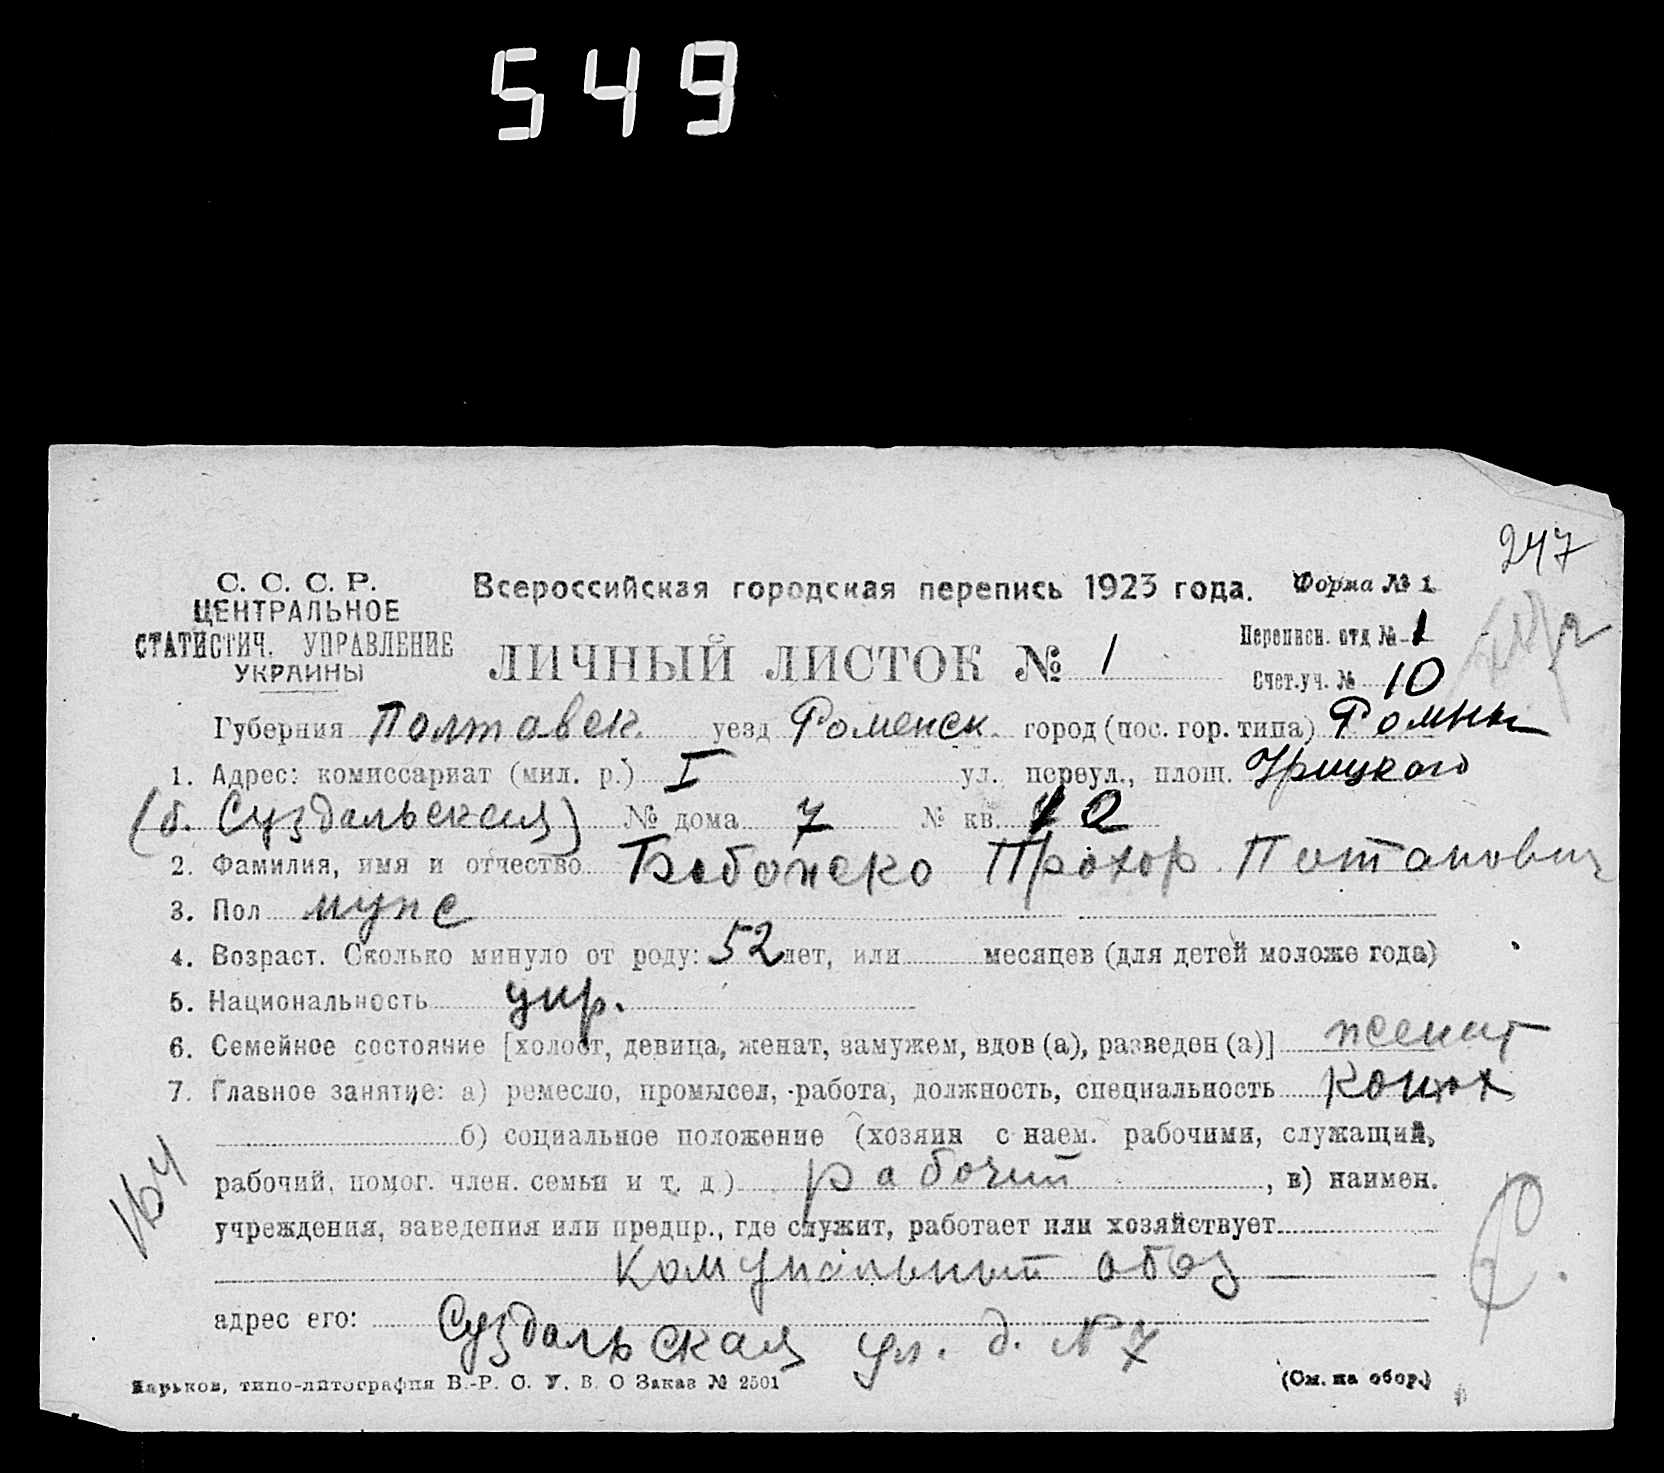 549
247
С. С. С. Р.
ЦЕНТРАЛЬНОЕ
СТАТИСТИЧ. УПРАВЛЕНИЕ
УКРАИНЫ
Всероссийская городская перепись 1923 года. Форма № 1
ЛИЧНЫЙ ЛИСТОК № 1
Переписн. отд № 1
Счет.уч. № 10
Губерния Полтавск. уезд Роменск. город (пос. гор. типа) Ромны
1. Адрес: комиссариат (мил. р.) I ул. переул., площ. Урицкого
(б. Суздальская) № дома 7 № кв.
2. Фамилия, имя и отчество Прохор Потапович
3. Пол мужс
4. Возраст. Сколько минуло от роду: 52 лет, или месяцев (для детей моложе года)
5. Национальность укр.
6. Семейное состояние [холост, девица, женат, замужем, вдов (а), разведен (а)] женат
7. Главное занятие: а) ремесло, промысел, работа, должность, специальность Конюх
б) социальное положение (хозяин с наем. рабочими, служащий,
рабочий, помог. член. семьи и т. д.) рабочий, в) наимен.
учреждения, заведения или предпр., где служит, работает или хозяйствует
Комунальный обоз
адрес его: Суздальская ул. д. № 7
164
Харьков, типо-литография В.-Р. С. У. В. О Заказ № 2501
(См. на обор.)